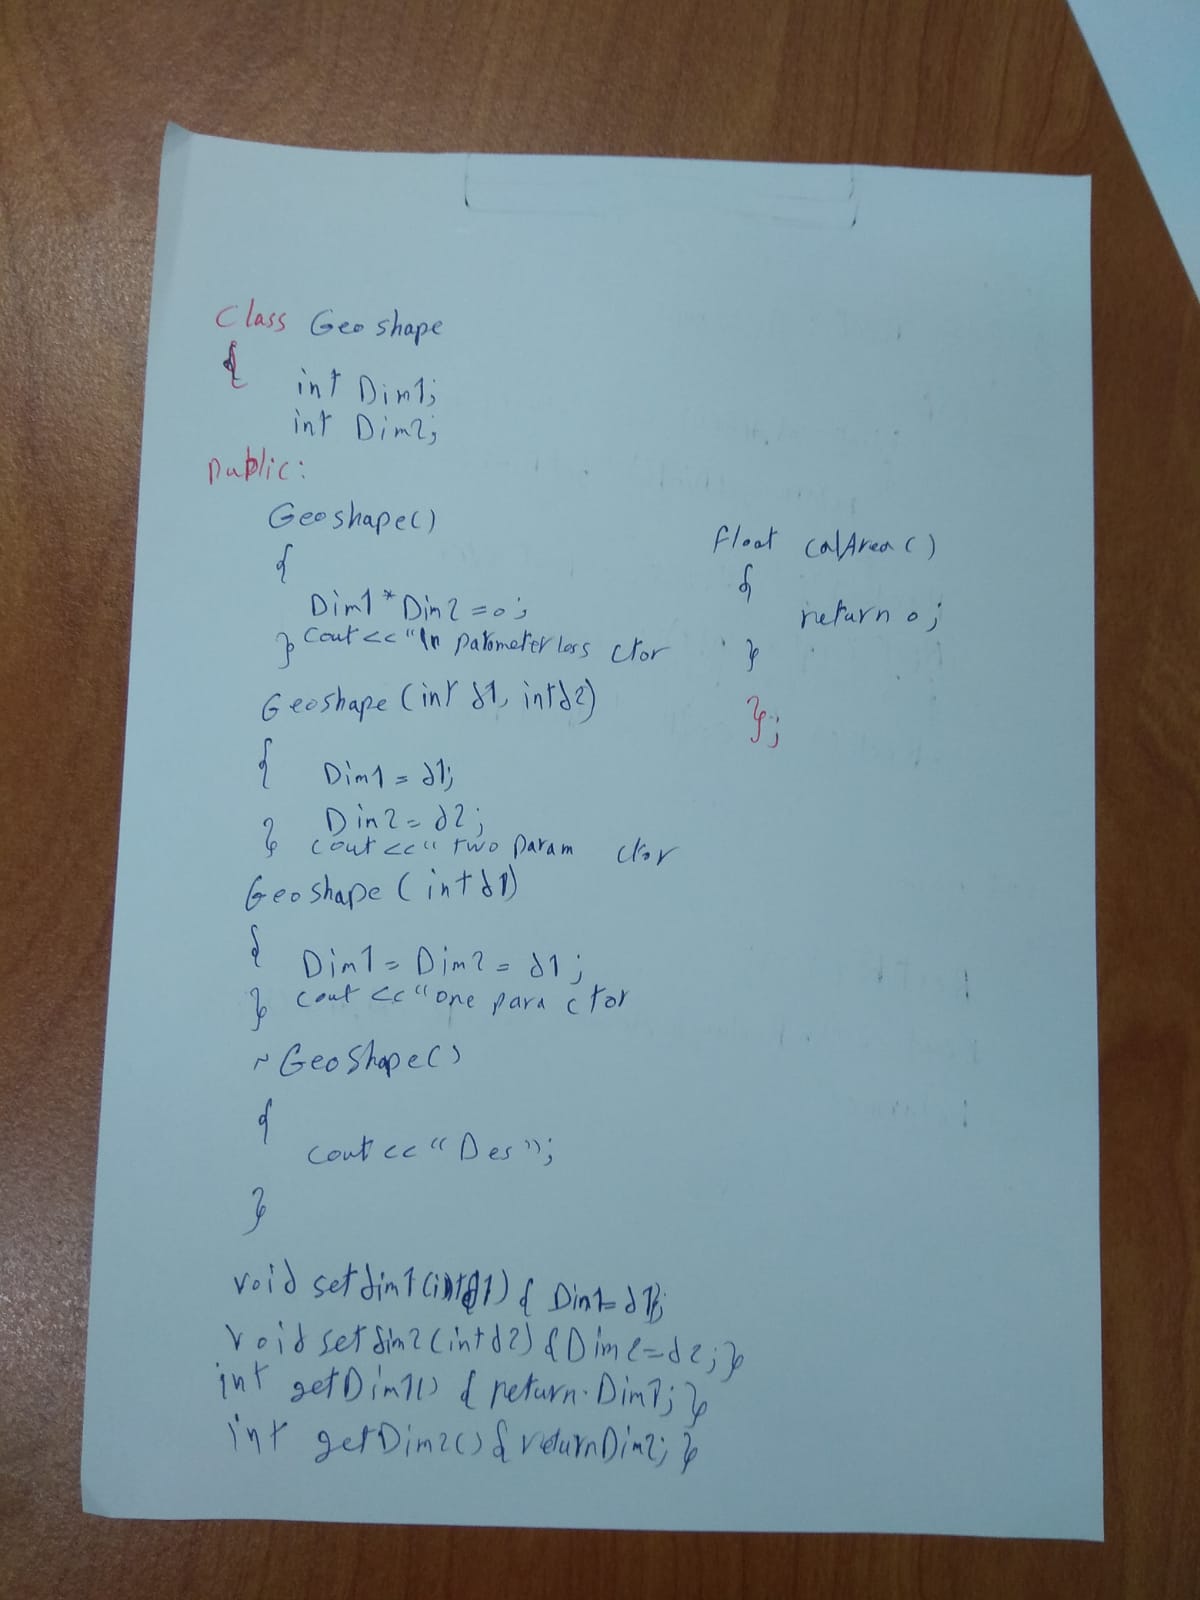 Class Geoshape
{
int Dim1;
int Dim2;
public:
Geoshape()
{
Dim1*Dim2=0;
} cout<<"In parometerless ctor
Geoshape(int d1, int d2)
{ Dim1 = d1;
Dim2 = d2;
} cout<<"two param ctor
Geoshape (int d1)
{ Dim1 = Dim2 = d1;
} cout <<"one para ctor
~GeoShape()
{
cout<<"Des";
}
void setdim1(int d1) { Dim1=d1;}
void setdim2(int d2) {Dim2=d2;}
int getDim1() { return Dim1; }
int getDim2() { return Dim2; }
float calArea()
{
return 0;
}
};